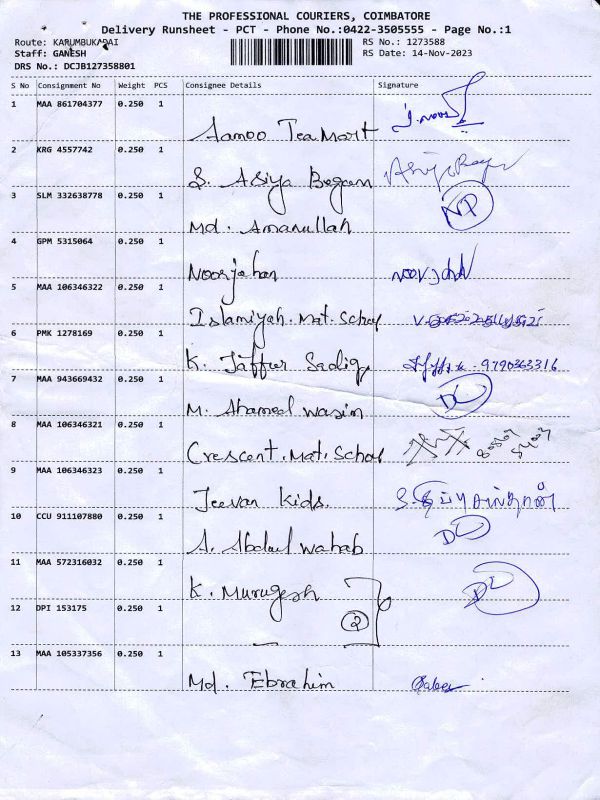 THE PROFESSIONAL COURIERS, COIMBATORE
Delivery Runsheet - PCT - Phone No.:0422-3505555 - Page No.:1
Route: KARUMBUKADAI RS No.: 1273588
Staff: GANESH RS Date: 14-Nov-2023
DRS No.: DCJB127358801
S No Consignment No Weight PCS Consignee Details Signature
1 MAA 861704377 0.250 1
Aamoo Tea Mart
2 KRG 4557742 0.250 1
S. Asiya Begam
3 SLM 332638778 0.250 1 NP
Md. Amanullah
4 GPM 5315064 0.250 1
Noorjahan
5 MAA 106346322 0.250 1
Islamiyah. Mat. School
6 PMK 1278169 0.250 1
K. Jaffur Sadiq 9790363316
7 MAA 943669432 0.250 1 DL
M. Ahamed Wasim
8 MAA 106346321 0.250 1
Crescent. Mat. School
9 MAA 106346323 0.250 1
Jeevan Kids.
10 CCU 911107880 0.250 1 DL
A. Abdul Wahab
11 MAA 572316032 0.250 1 DL
K. Murugesh
12 DPI 153175 0.250 1 2
13 MAA 105337356 0.250 1
Md. Ebrahim